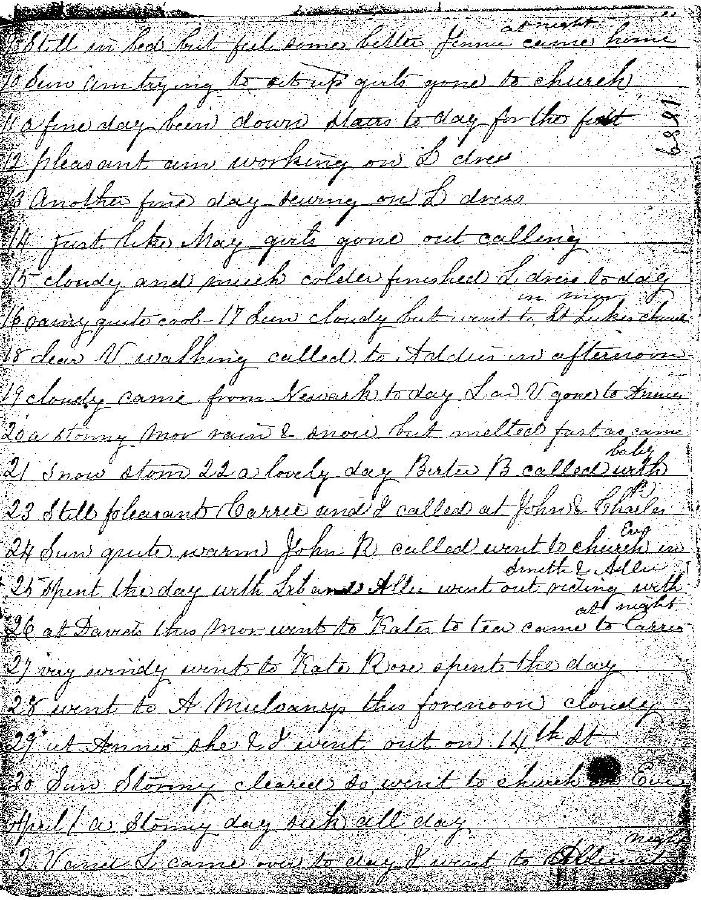 Still in bed but feel some better Jennie came home at night
10 Sun am trying to sit up girls gone to church
11 a fine day been down stairs to day for the first
1889
12 pleasant am working on L dress
13 Another fine day sewing on L dress
14 Just like May girls gone out calling
15 cloudy and much colder finished L dress to day
16 rainy quite cool - 17 Sun cloudy but went to St Lukes church in mor
18 clear V walking called to Addies in afternoon
19 cloudy came from Newark to day L & V gone to Annies
20 a stormy mor rain & snow but melted fast as came
21 Snow storm 22 a lovely day Bertie B called with baby
23 Still pleasant Carrie and I called at John & Charles R
24 Sun quite warm John R called went to church in Eve
25 Spent the day with Allie went out riding with Smith & Allie
26 at Davids this mor went to Kates to tea came to Carries at night
27 very windy went to Kate Rose spent the day
28 went to A this forenoon cloudy
29 at Annies she & I went out on 14th St
30 Sun Stormy cleared so went to church Eve
April 1 a stormy day sick all day
2 V and L came over to day I went to night